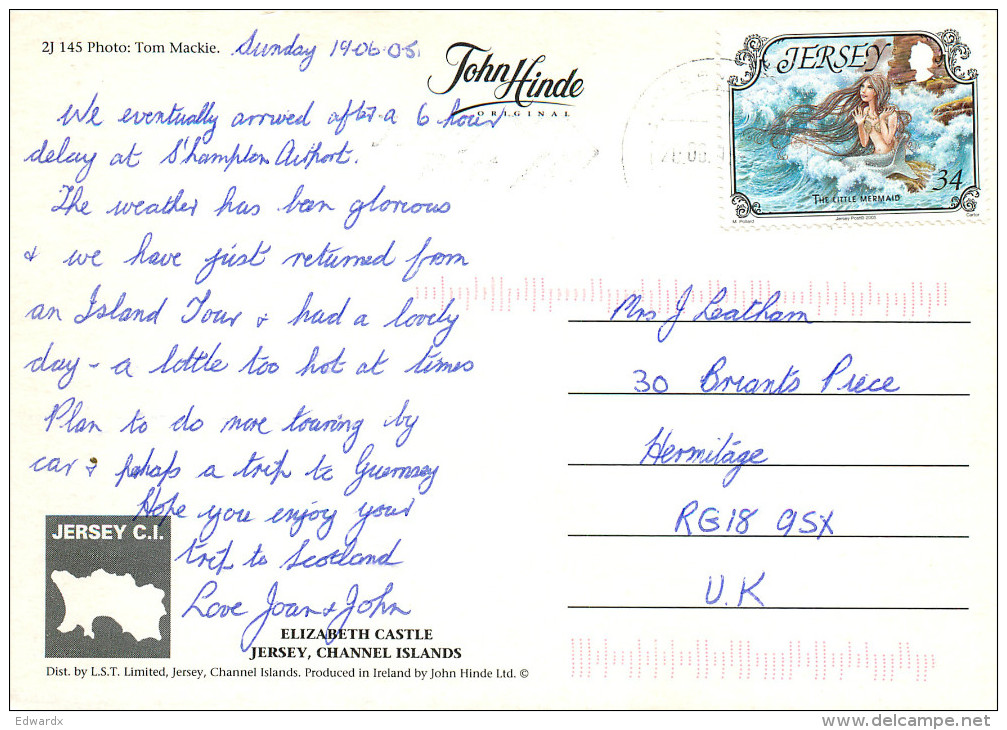 2J 145 Photo: Tom Mackie. Sunday 19.06.05.
John Hinde
ORIGINAL
We eventually arrived after a 6 hour
delay at S'hampton Airport.
The weather has been glorious
& we have just returned from
an Island Tour & had a lovely
day - a little too hot at times
Plan to do more touring by
car & perhaps a trip to Guernsey
Hope you enjoy your
trip to Scotland
Love Joan & John
JERSEY
34
THE LITTLE MERMAID
M. Pollard
Jersey Post© 2005
Cartor
Mrs J Leatham
30 Briants Piece
Hermitage
RG18 9SX
U.K
JERSEY C.I.
ELIZABETH CASTLE
JERSEY, CHANNEL ISLANDS
Dist. by L.S.T. Limited, Jersey, Channel Islands. Produced in Ireland by John Hinde Ltd. ©
Edwardx
www.delcampe.net